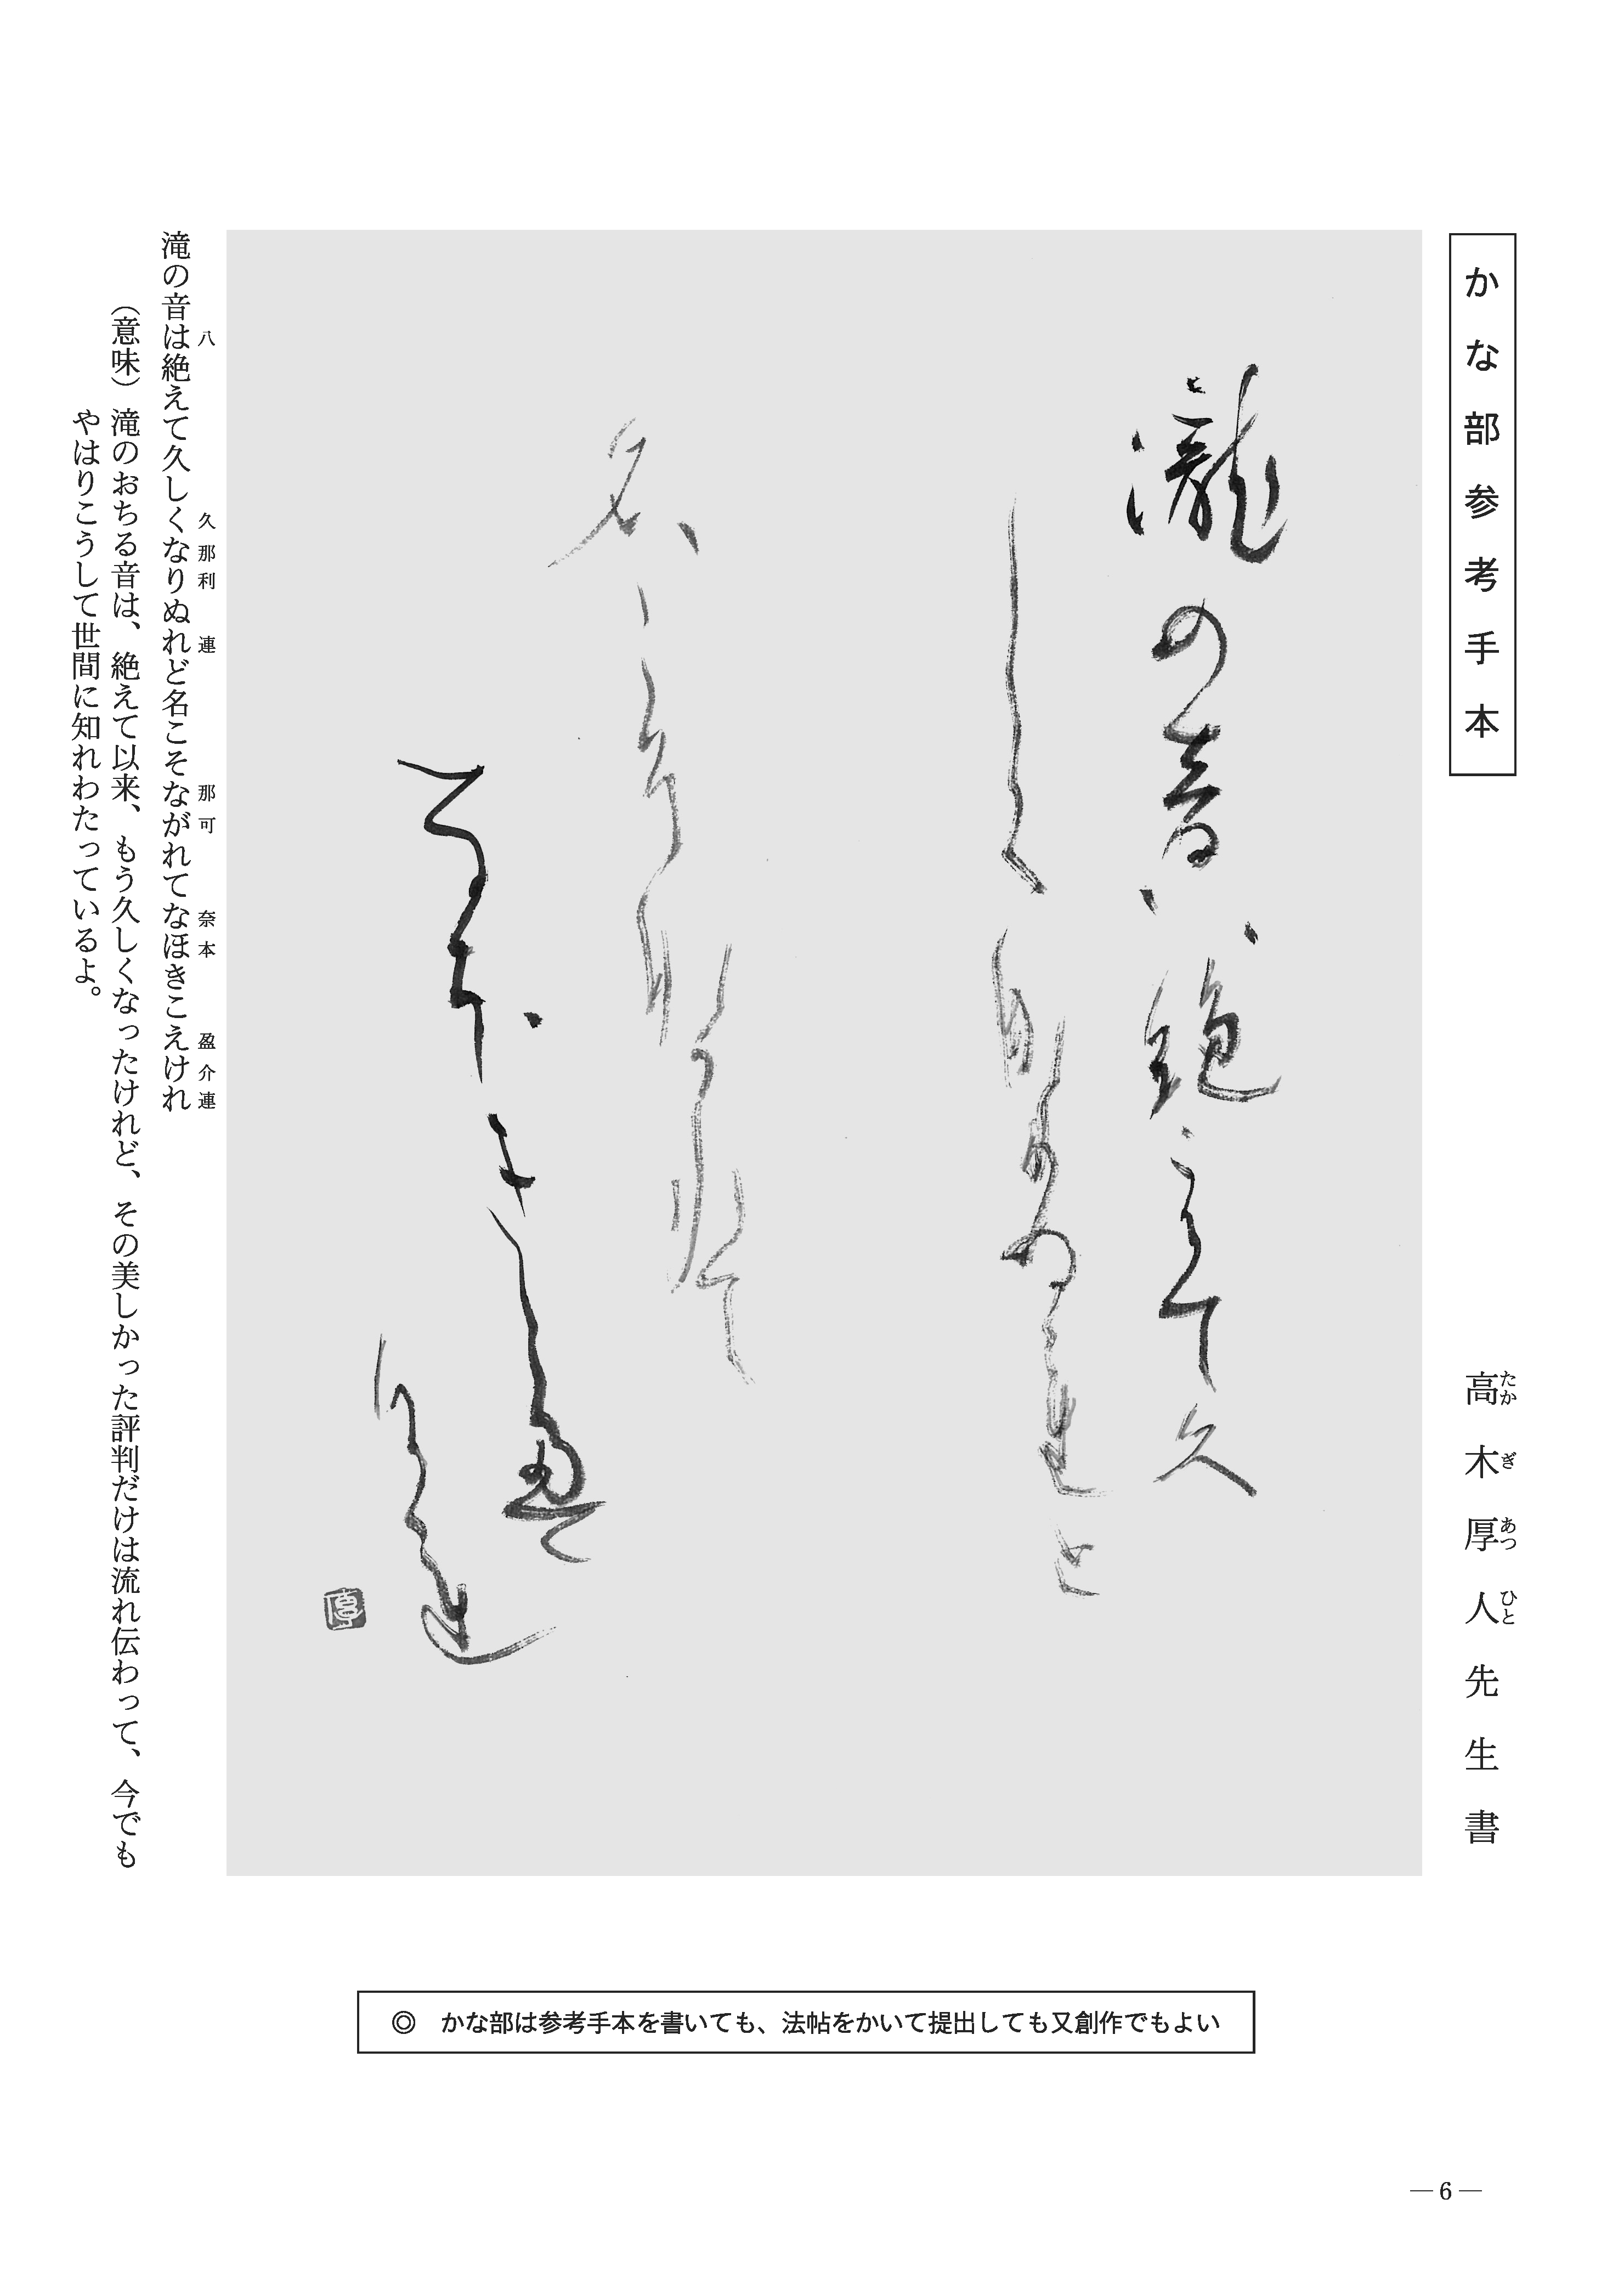 かな部参考手本
高木厚人先生書
たかぎあつひと
瀧の音八絶えて久
しく那利ぬ連と
名こそ那可れて
奈本きこ盈
介連
滝の音は絶えて久しくなりぬれど名こそながれてなほきこえけれ
八 久那利 連 那可 奈本 盈介連
（意味）滝のおちる音は、絶えて以来、もう久しくなったけれど、その美しかった評判だけは流れ伝わって、今でも
やはりこうして世間に知れわたっているよ。
◎　かな部は参考手本を書いても、法帖をかいて提出しても又創作でもよい
― 6 ―